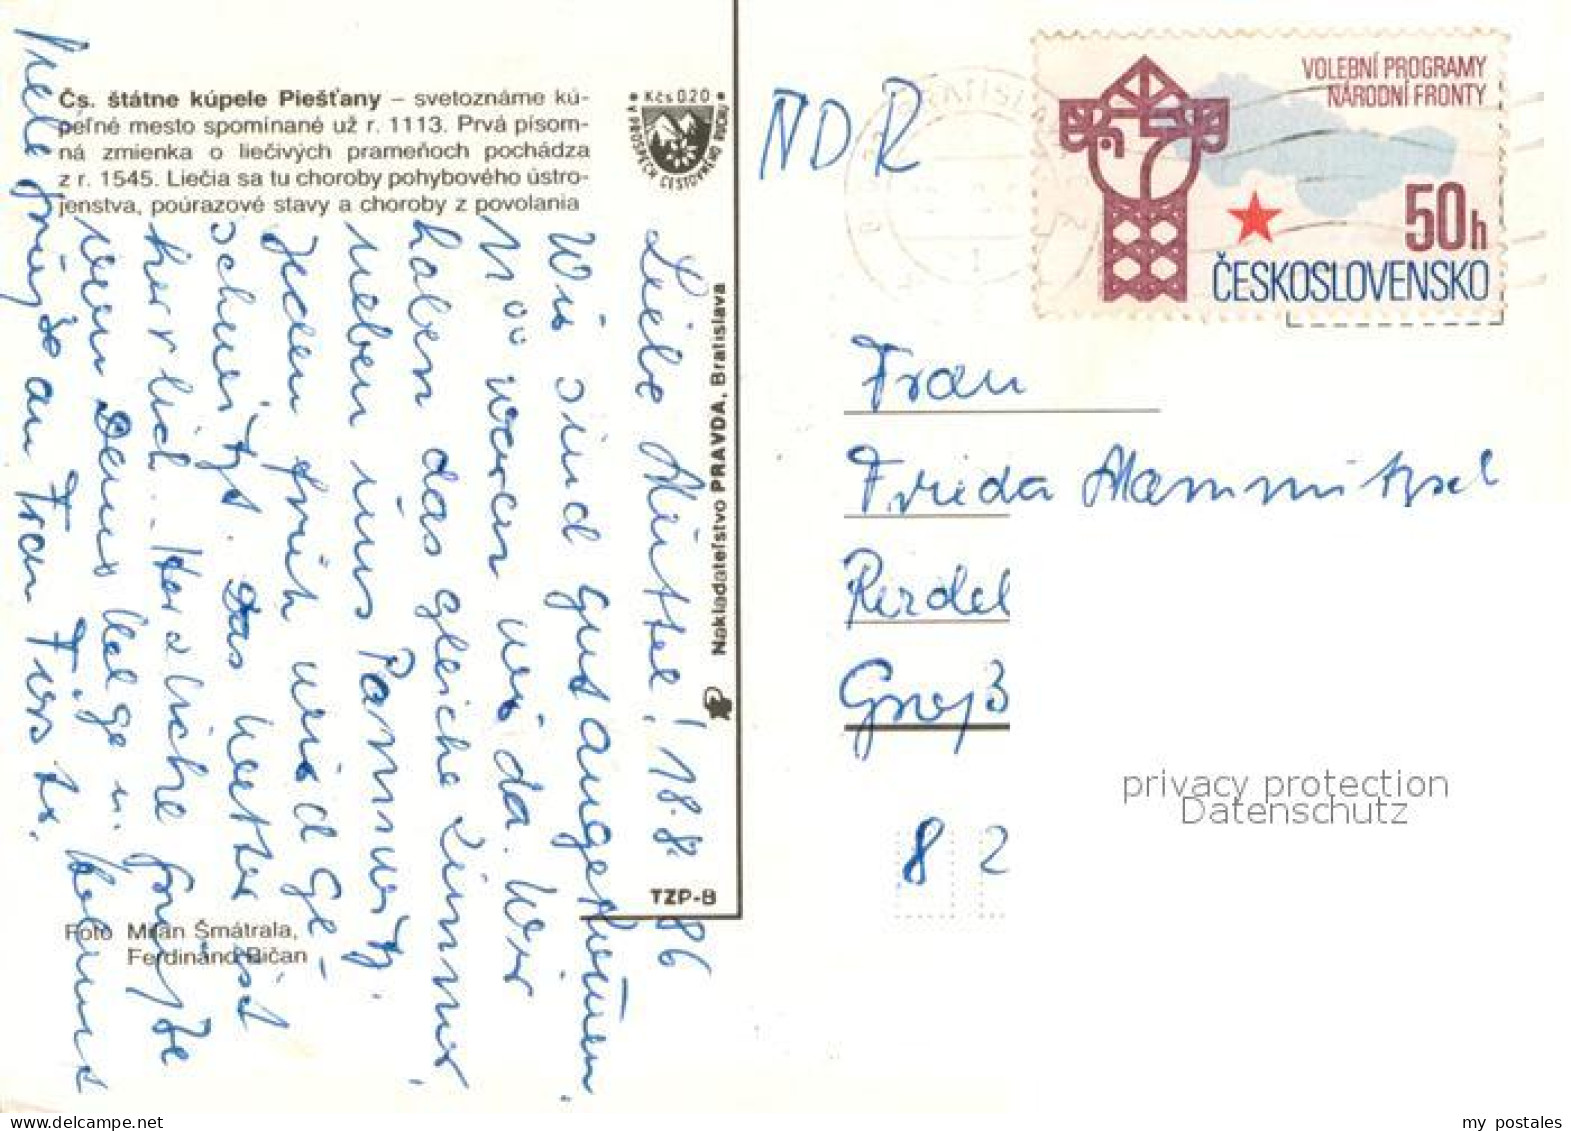 Čs. štátne kúpele Piešťany – svetoznáme kú-
peľné mesto spomínané už r. 1113. Prvá písom-
ná zmienka o liečivých prameňoch pochádza
z r. 1545. Liečia sa tu choroby pohybového ústro-
jenstva, poúrazové stavy a choroby z povolania
• Kčs 0.20 •
V PROSPECH CESTOVNÉHO RUCHU
Nakladateľstvo PRAVDA, Bratislava
TZP-B
Foto Milan Šmátrala,
Ferdinánd Bičan
Liebe Mutter! 18.8.86
Wir sind gut angekommen.
waren wir da. Wir
haben das gleiche Zimmer,
neben uns
Jeden früh wird Ge-
schwitzt. Das Wetter ist
herrlich. Herzliche Grüße
von Deine Helge u.
Viele Grüße an Frau
NDR
VOLEBNÍ PROGRAMY
NÁRODNÍ FRONTY
50h
ČESKOSLOVENSKO
Frau
Frieda
Groß
8 2
privacy protection
Datenschutz
my postales